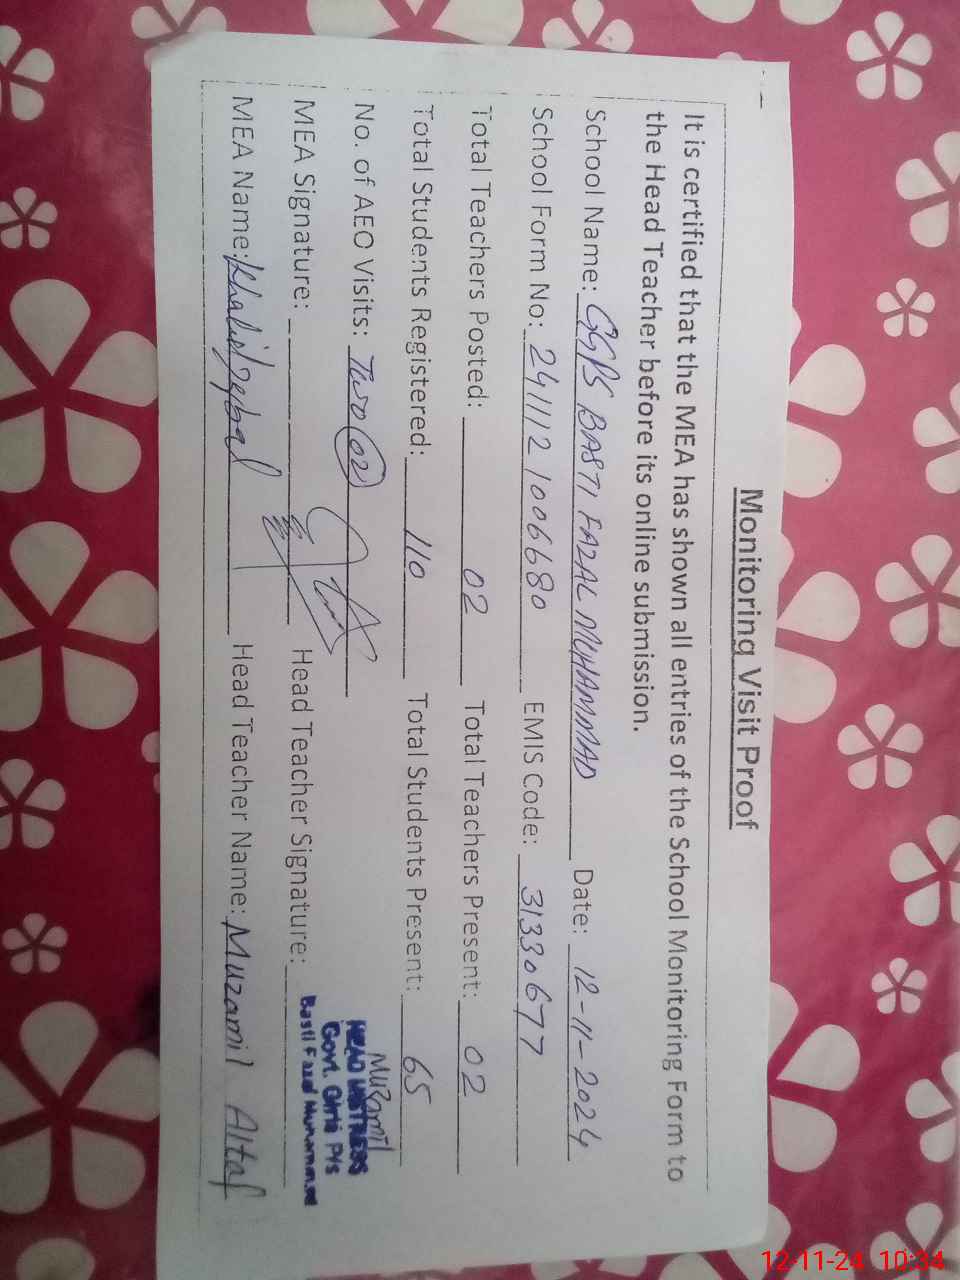 Monitoring Visit Proof
It is certified that the MEA has shown all entries of the School Monitoring Form to
the Head Teacher before its online submission.
School Name: GGPS BASTI FAZAL MUHAMMAD Date: 12-11-2024
School Form No: 2411121006680 EMIS Code: 31330677
Total Teachers Posted: 02 Total Teachers Present: 02
Total Students Registered: 110 Total Students Present: 65
No. of AEO Visits: Two (02)
MEA Signature: Head Teacher Signature: Muzamil
HEAD MISTRESS
Govt. Girls P/S
Basti Fazal Muhammad
MEA Name: Khalid Iqbal Head Teacher Name: Muzamil Altaf
12-11-24 10:34